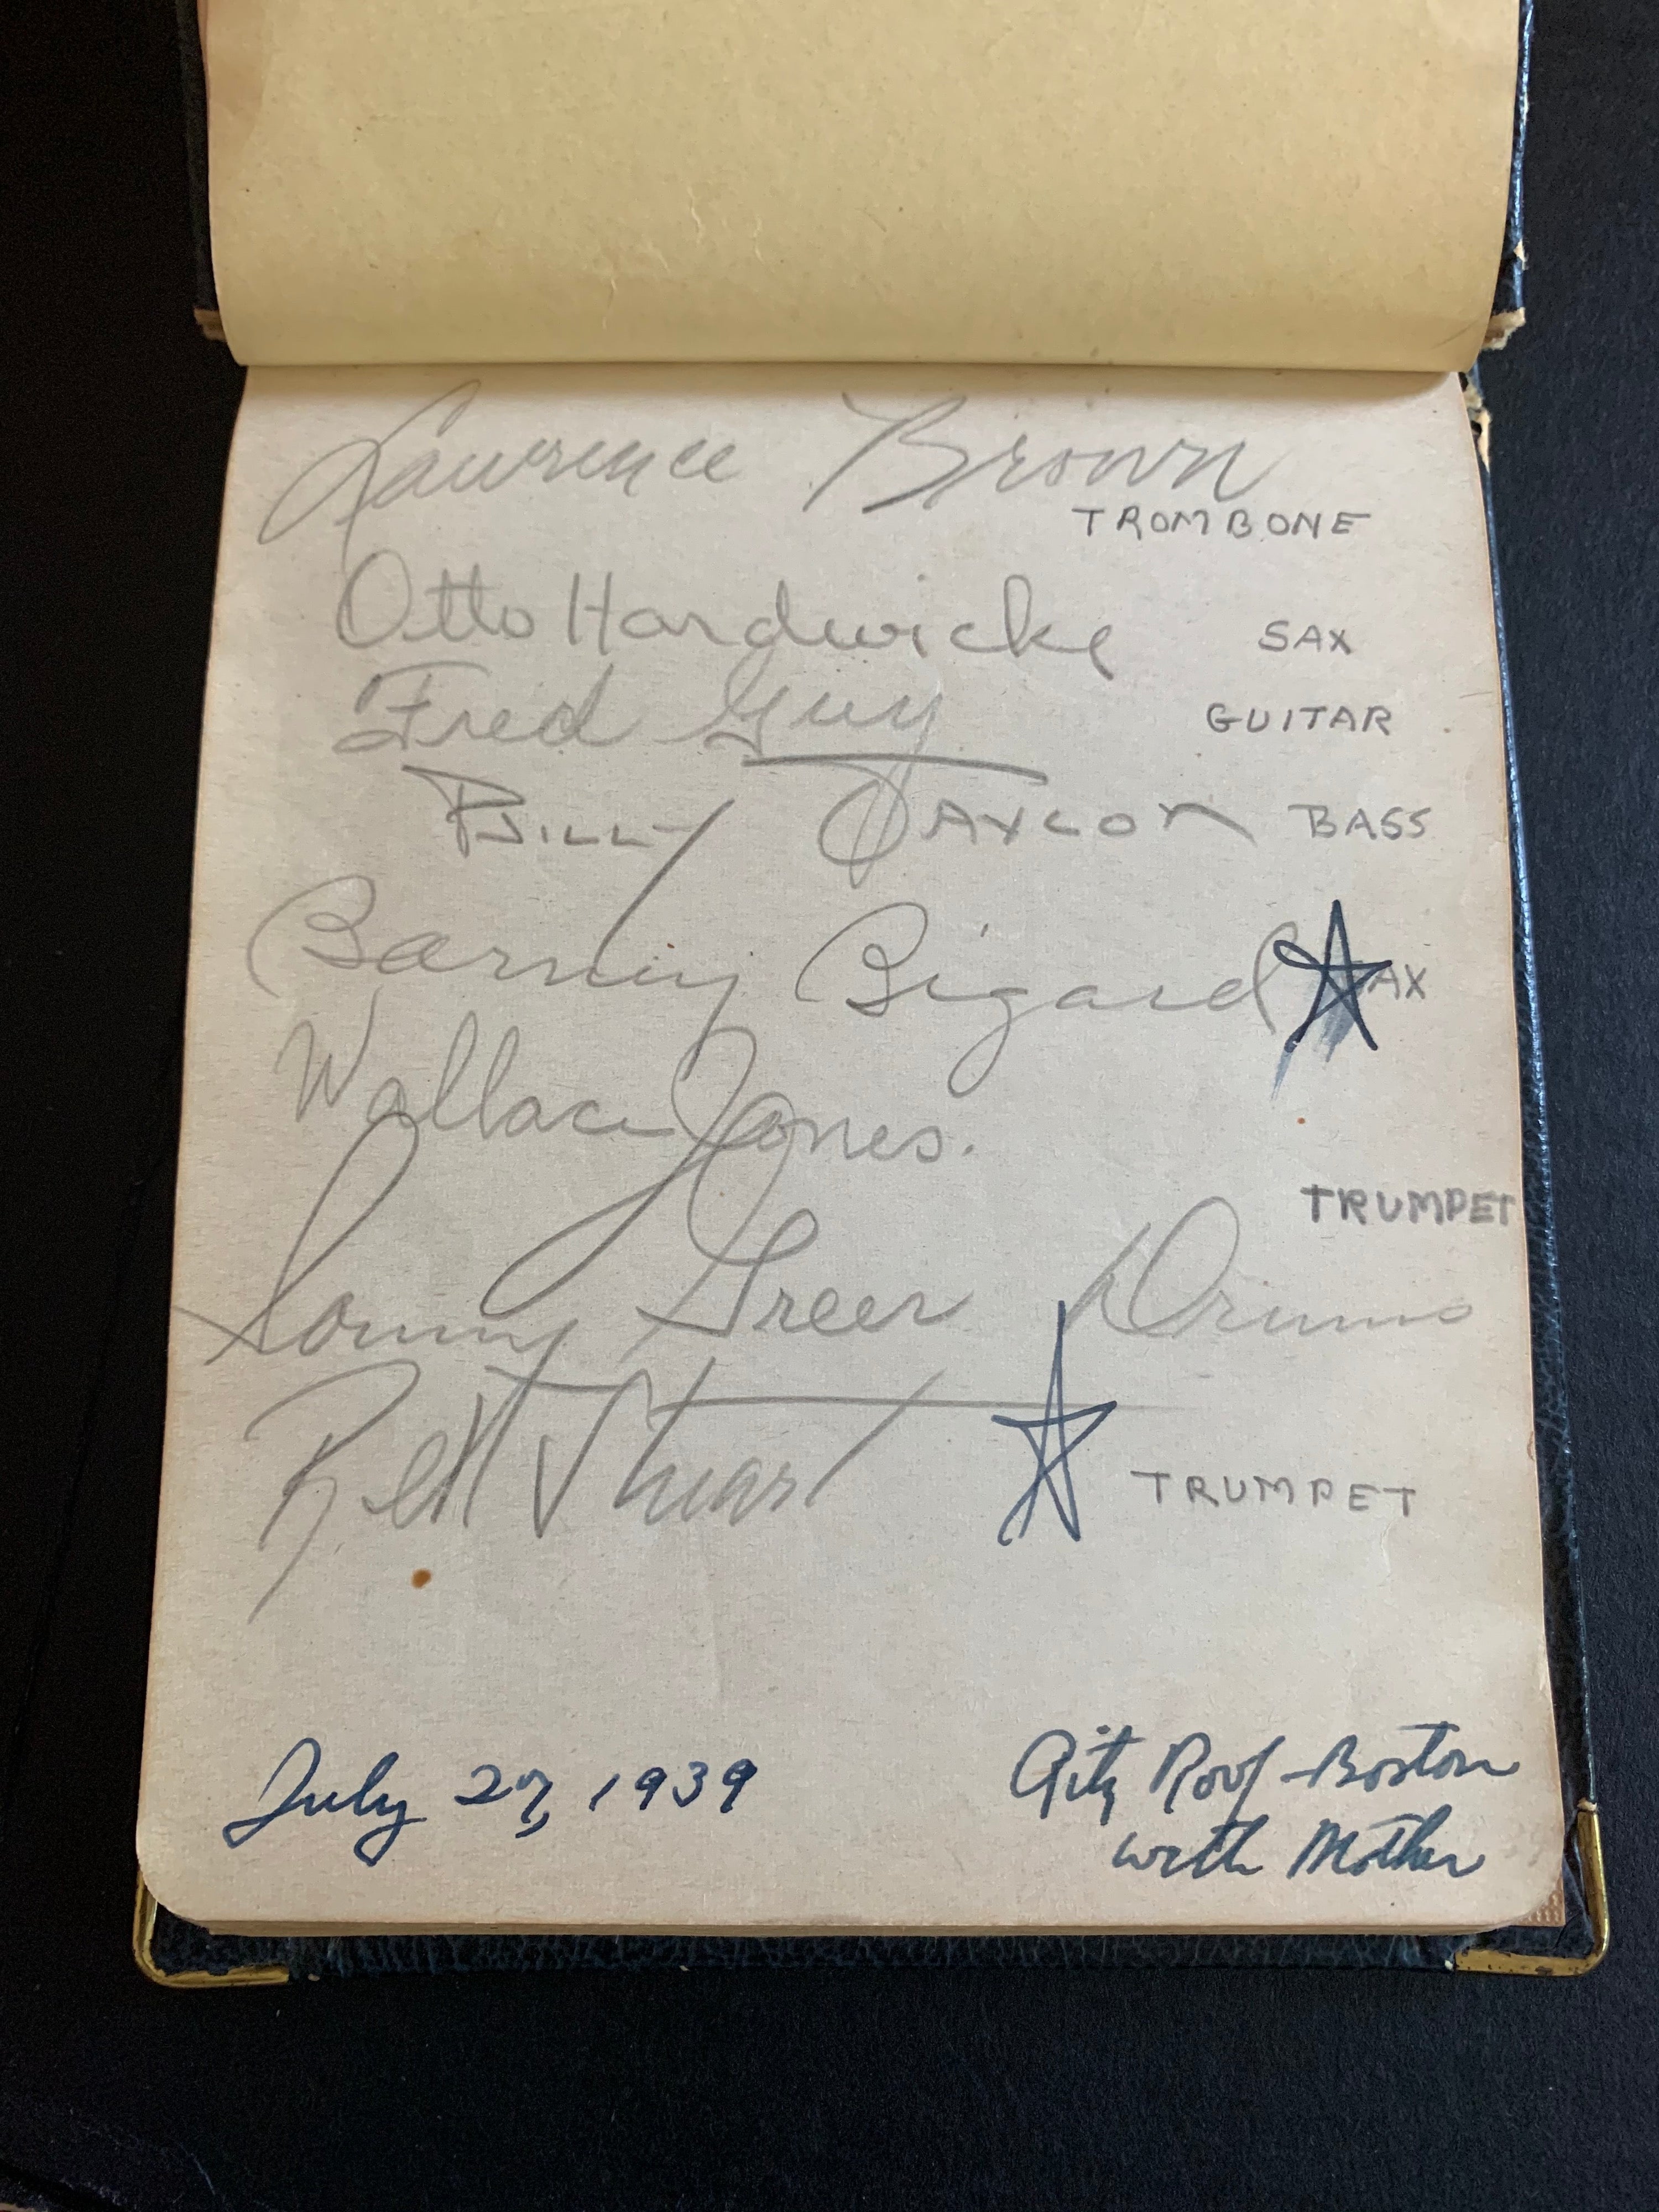 Lawrence Brown
TROMBONE
Otto Hardwicke SAX
Fred Guy GUITAR
BILLY TAYLOR BASS
Barney Bigard SAX
Wallace Jones.
TRUMPET
Sonny Greer Drums
Rex Stewart TRUMPET
July 27, 1939 Ritz Roof-Boston
with Mother